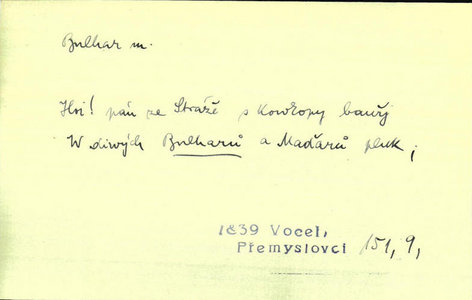 Bulhar m.
Hoj! pán ze Stráže s Kowkopy bawj
W diwých Bulharů a Maďarů pluk,
1839 Vocel,
Přemyslovci 151, 9,